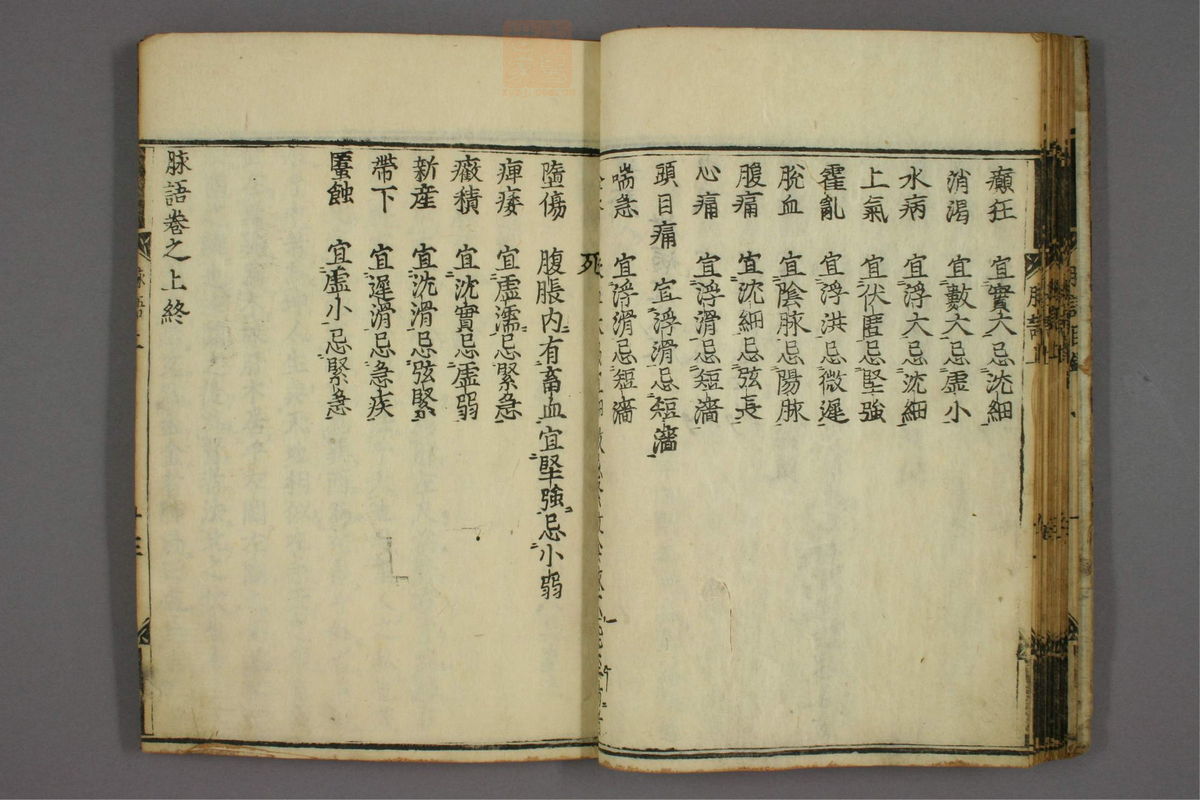 癲狂 宜實大忌沈細
消渴 宜數大忌虛小
水病 宜浮大忌沈細
上氣 宜伏匿忌堅強
霍亂 宜浮洪忌微遲
脫血 宜陰脉忌陽脉
腹痛 宜沈細忌弦長
心痛 宜浮滑忌短濇
頭目痛 宜浮滑忌短濇
喘急 宜浮滑忌短濇
死
墮傷 腹脹内有畜血宜堅強忌小弱
痺痿 宜虛濡忌緊急
癥積 宜沈實忌虛弱
新産 宜沈滑忌弦緊
帶下 宜遲滑忌急疾
䘌蝕 宜虛小忌緊急
脉語卷之上終